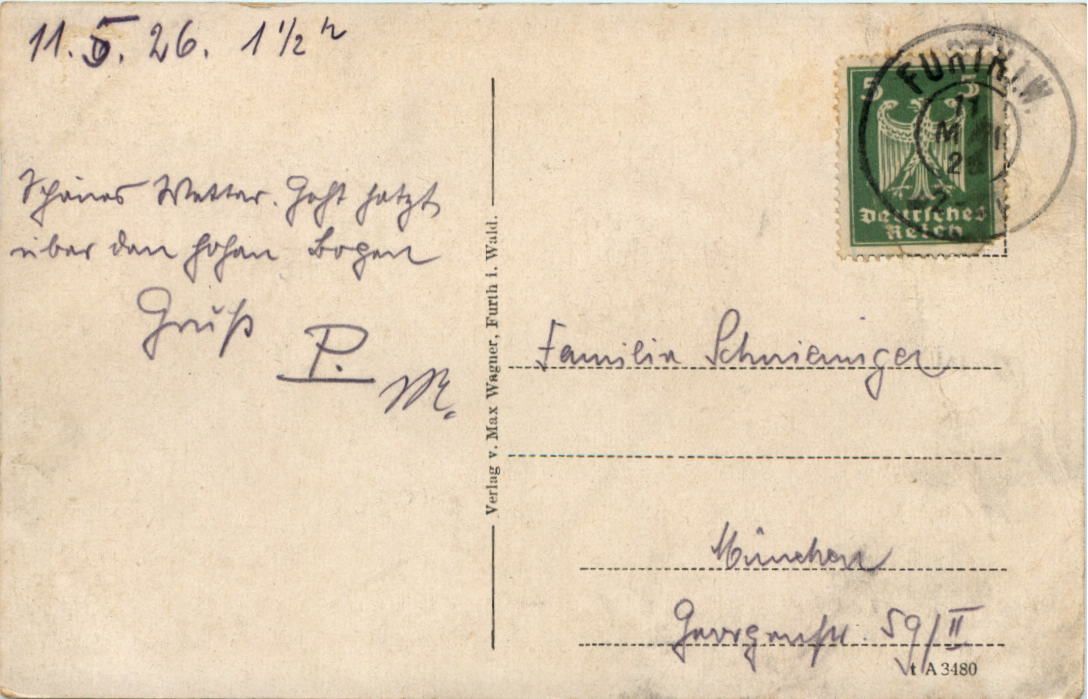 11. 5. 26. 1 1/2 h
Schönes Wetter. Geht jetzt
über den hohen Bogen
Gruß
P.
M.
Verlag v. Max Wagner, Furth i. Wald.
5 5
Deutsches
Reich
FURTH I. W.
11
Familie
München
Georgenstr. 59/II
t A 3480